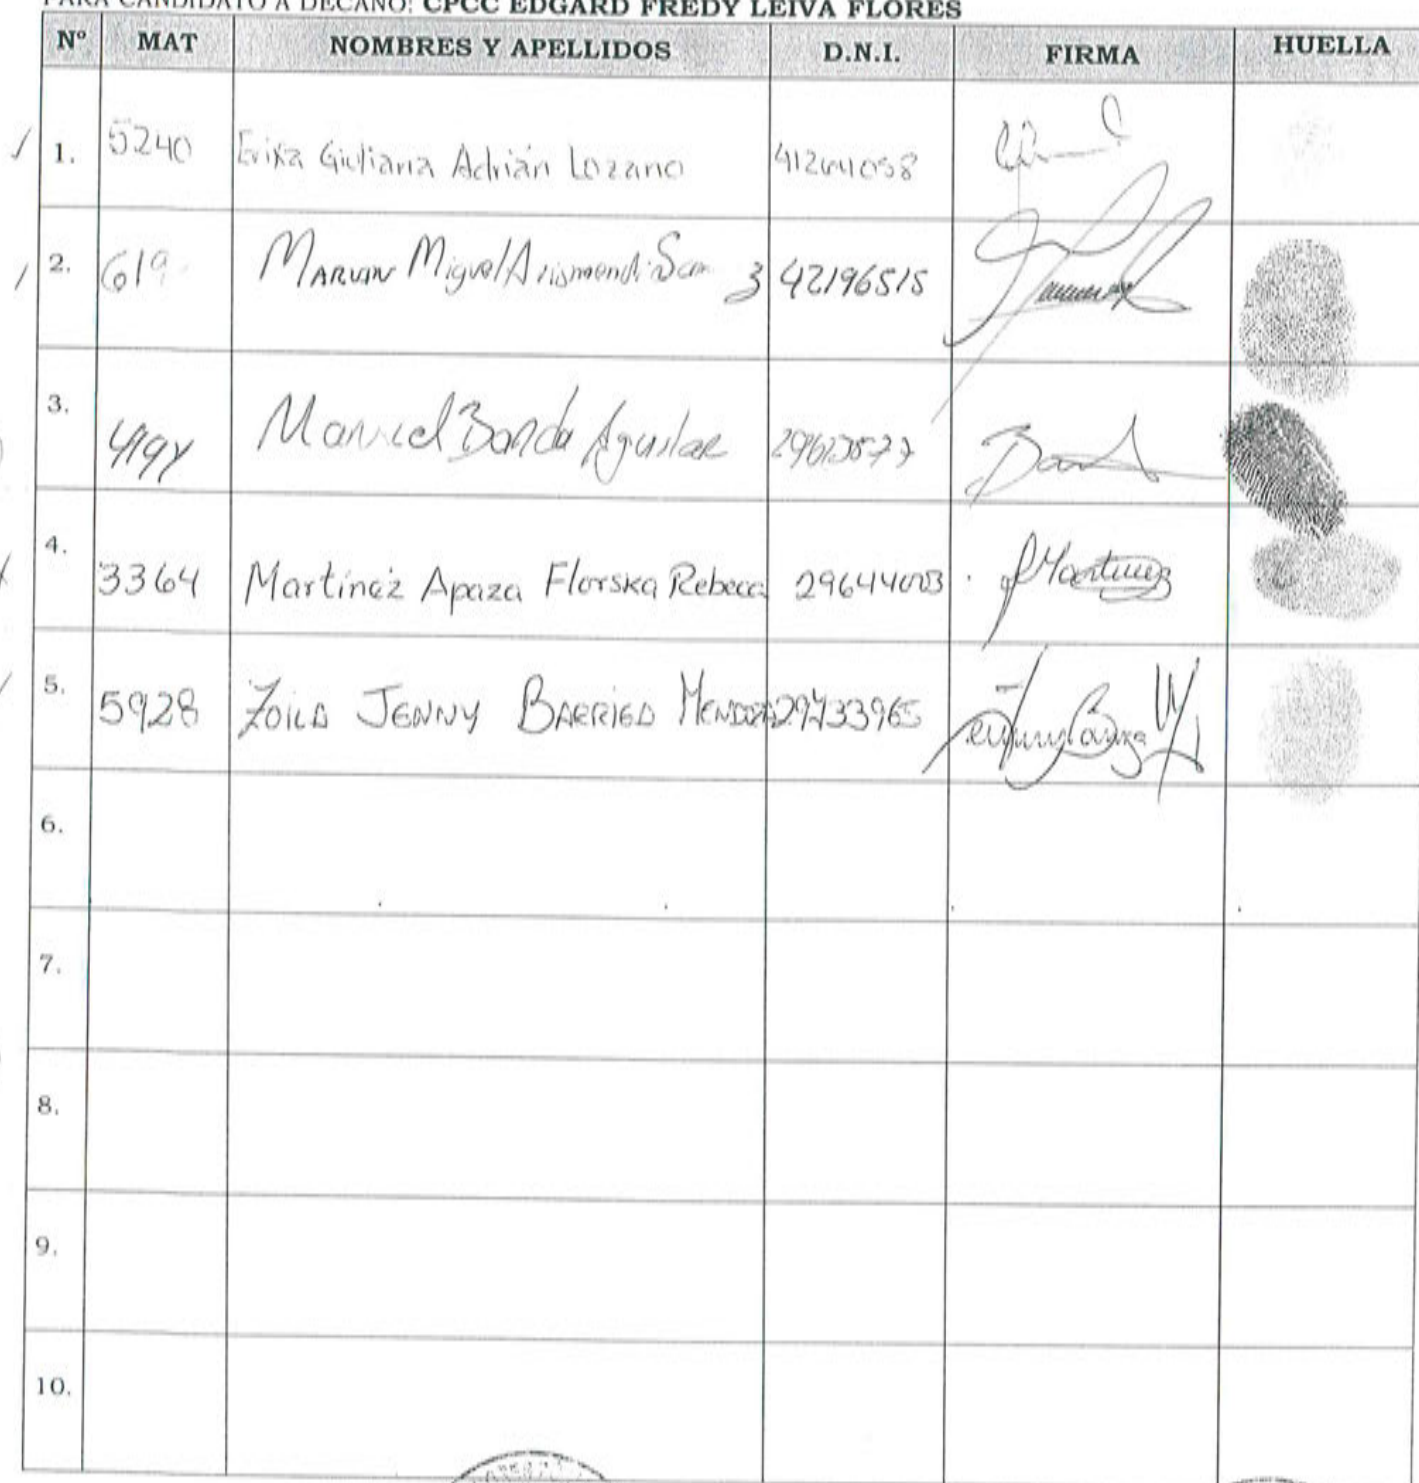 PARA CANDIDATO A DECANO: CPCC EDGARD FREDY LEIVA FLORES
Nº MAT NOMBRES Y APELLIDOS D.N.I. FIRMA HUELLA
1. 5240 Erika Giuliana Adrián Lozano
2. 619 Marvin Miguel Arismendi 42196515
3. Manuel Banda Aguilar
4. 3364 Martínez Apaza Florska Rebeca 29644003
5. 5928 ZOILA JENNY BARRIGA MENDOZA 29733965
6.
7.
8.
9.
10.